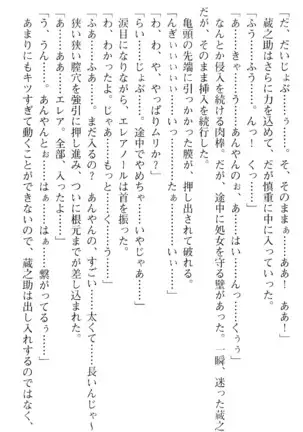 「だ、だいじょぶ……ぅ……。そ、そのままぁ……ああ！　ああ！」
蔵之助はさらに力を込めて、だが慎重に中に入っていった。
「ふぅ……ふう……。んっ！　くっ……」
「あ！　きゃ……う……あんやんのぉ、あ……はい……んっ……くぅぅ」
なんとか侵入を続ける肉棒。だが、途中に処女を守る壁があった。一瞬、迷った蔵之
だが、そのまま挿入を続行した。
亀頭の先端に引っかかった膜が、押し出されて破れる。
「んぎぃぃぃぃ……ったぁ……いぃ……ぃ……」
「わ、わわ、や、やっぱりムリか？」
「らい……じょぶ……。途中でやめちゃ……いやじゃあ……」
涙目になりながら、エレアノールは首を振った。
「わ、わかったよ。じゃあ……もっと……く……う……」
「ふぁ……ふあ……。まだ入るの？　あんやんの、すごい……太くて……長いんじゃ〜
狭い狭い膣穴を強引に押し進み、ついに根元までが差し込まれた。
「あ……ああ……エレア。全部、入ったよ……」
「う、うん……。あんやんとぉ……はぁ……はぁ……繋がってるぅ……」
あまりにもキツすぎて動くことができないので、蔵之助は出し入れするのではなく、